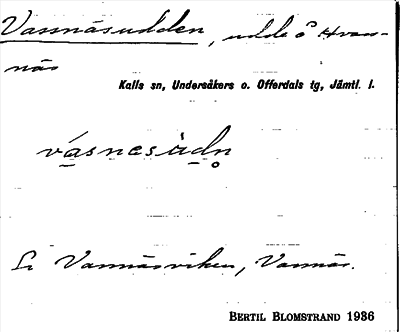 Vassnäsudden, udde å Hvass-
näs
Kalls sn, Undersåkers o. Offerdals tg, Jämtl. l.
vásnesùdn̥
Se Vassnäsviken, Vassnäs.
BERTIL BLOMSTRAND 1936